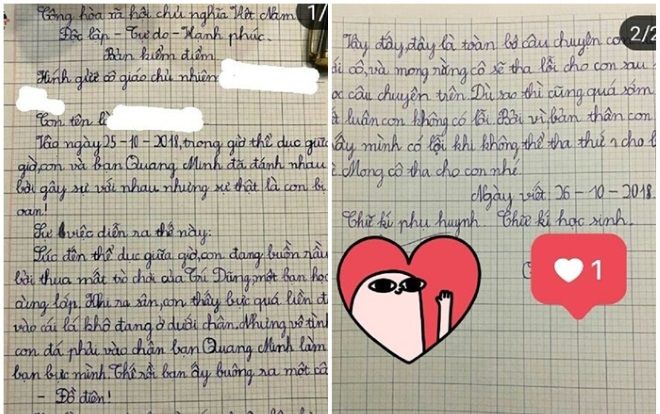 1/
Cộng hòa xã hội chủ nghĩa Việt Nam
Độc lập - Tự do - Hạnh phúc.
Bản kiểm điểm
Kính gửi cô giáo chủ nhiệm
Con tên là
Vào ngày 25-10-2018, trong giờ thể dục giữa
giờ, con và bạn Quang Minh đã đánh nhau
bởi gây sự với nhau nhưng sự thật là con bị
oan!
Sự việc diễn ra thế này:
Lúc đến thể dục giữa giờ, con đang buồn rầu
bởi thua mất tò chơi của Trí Dũng, một bạn học
cùng lớp. Khi ra sân, con thấy bực quá liền đ
vào cái lá khô đang ở dưới chân. Nhưng vô tình
con đá phải vào chân bạn Quang Minh làm
bạn bực mình. Thế rồi bạn ấy buông ra một câ
- Đồ điên!
2/2
Vậy đấy, đây là toàn bộ câu chuyện con
ới cô, và mong rằng cô sẽ tha lỗi cho con sau
ọc câu chuyện trên. Dù sao thì cũng quá sớm
ết luận con không có lỗi. Bởi vì bản thân con
ấy mình có lỗi khi không thể tha thứ cho b
Mong cô tha cho con nhé.
Ngày viết: 26-10-2018
Chữ kí phụ huynh. Chữ kí học sinh.
1